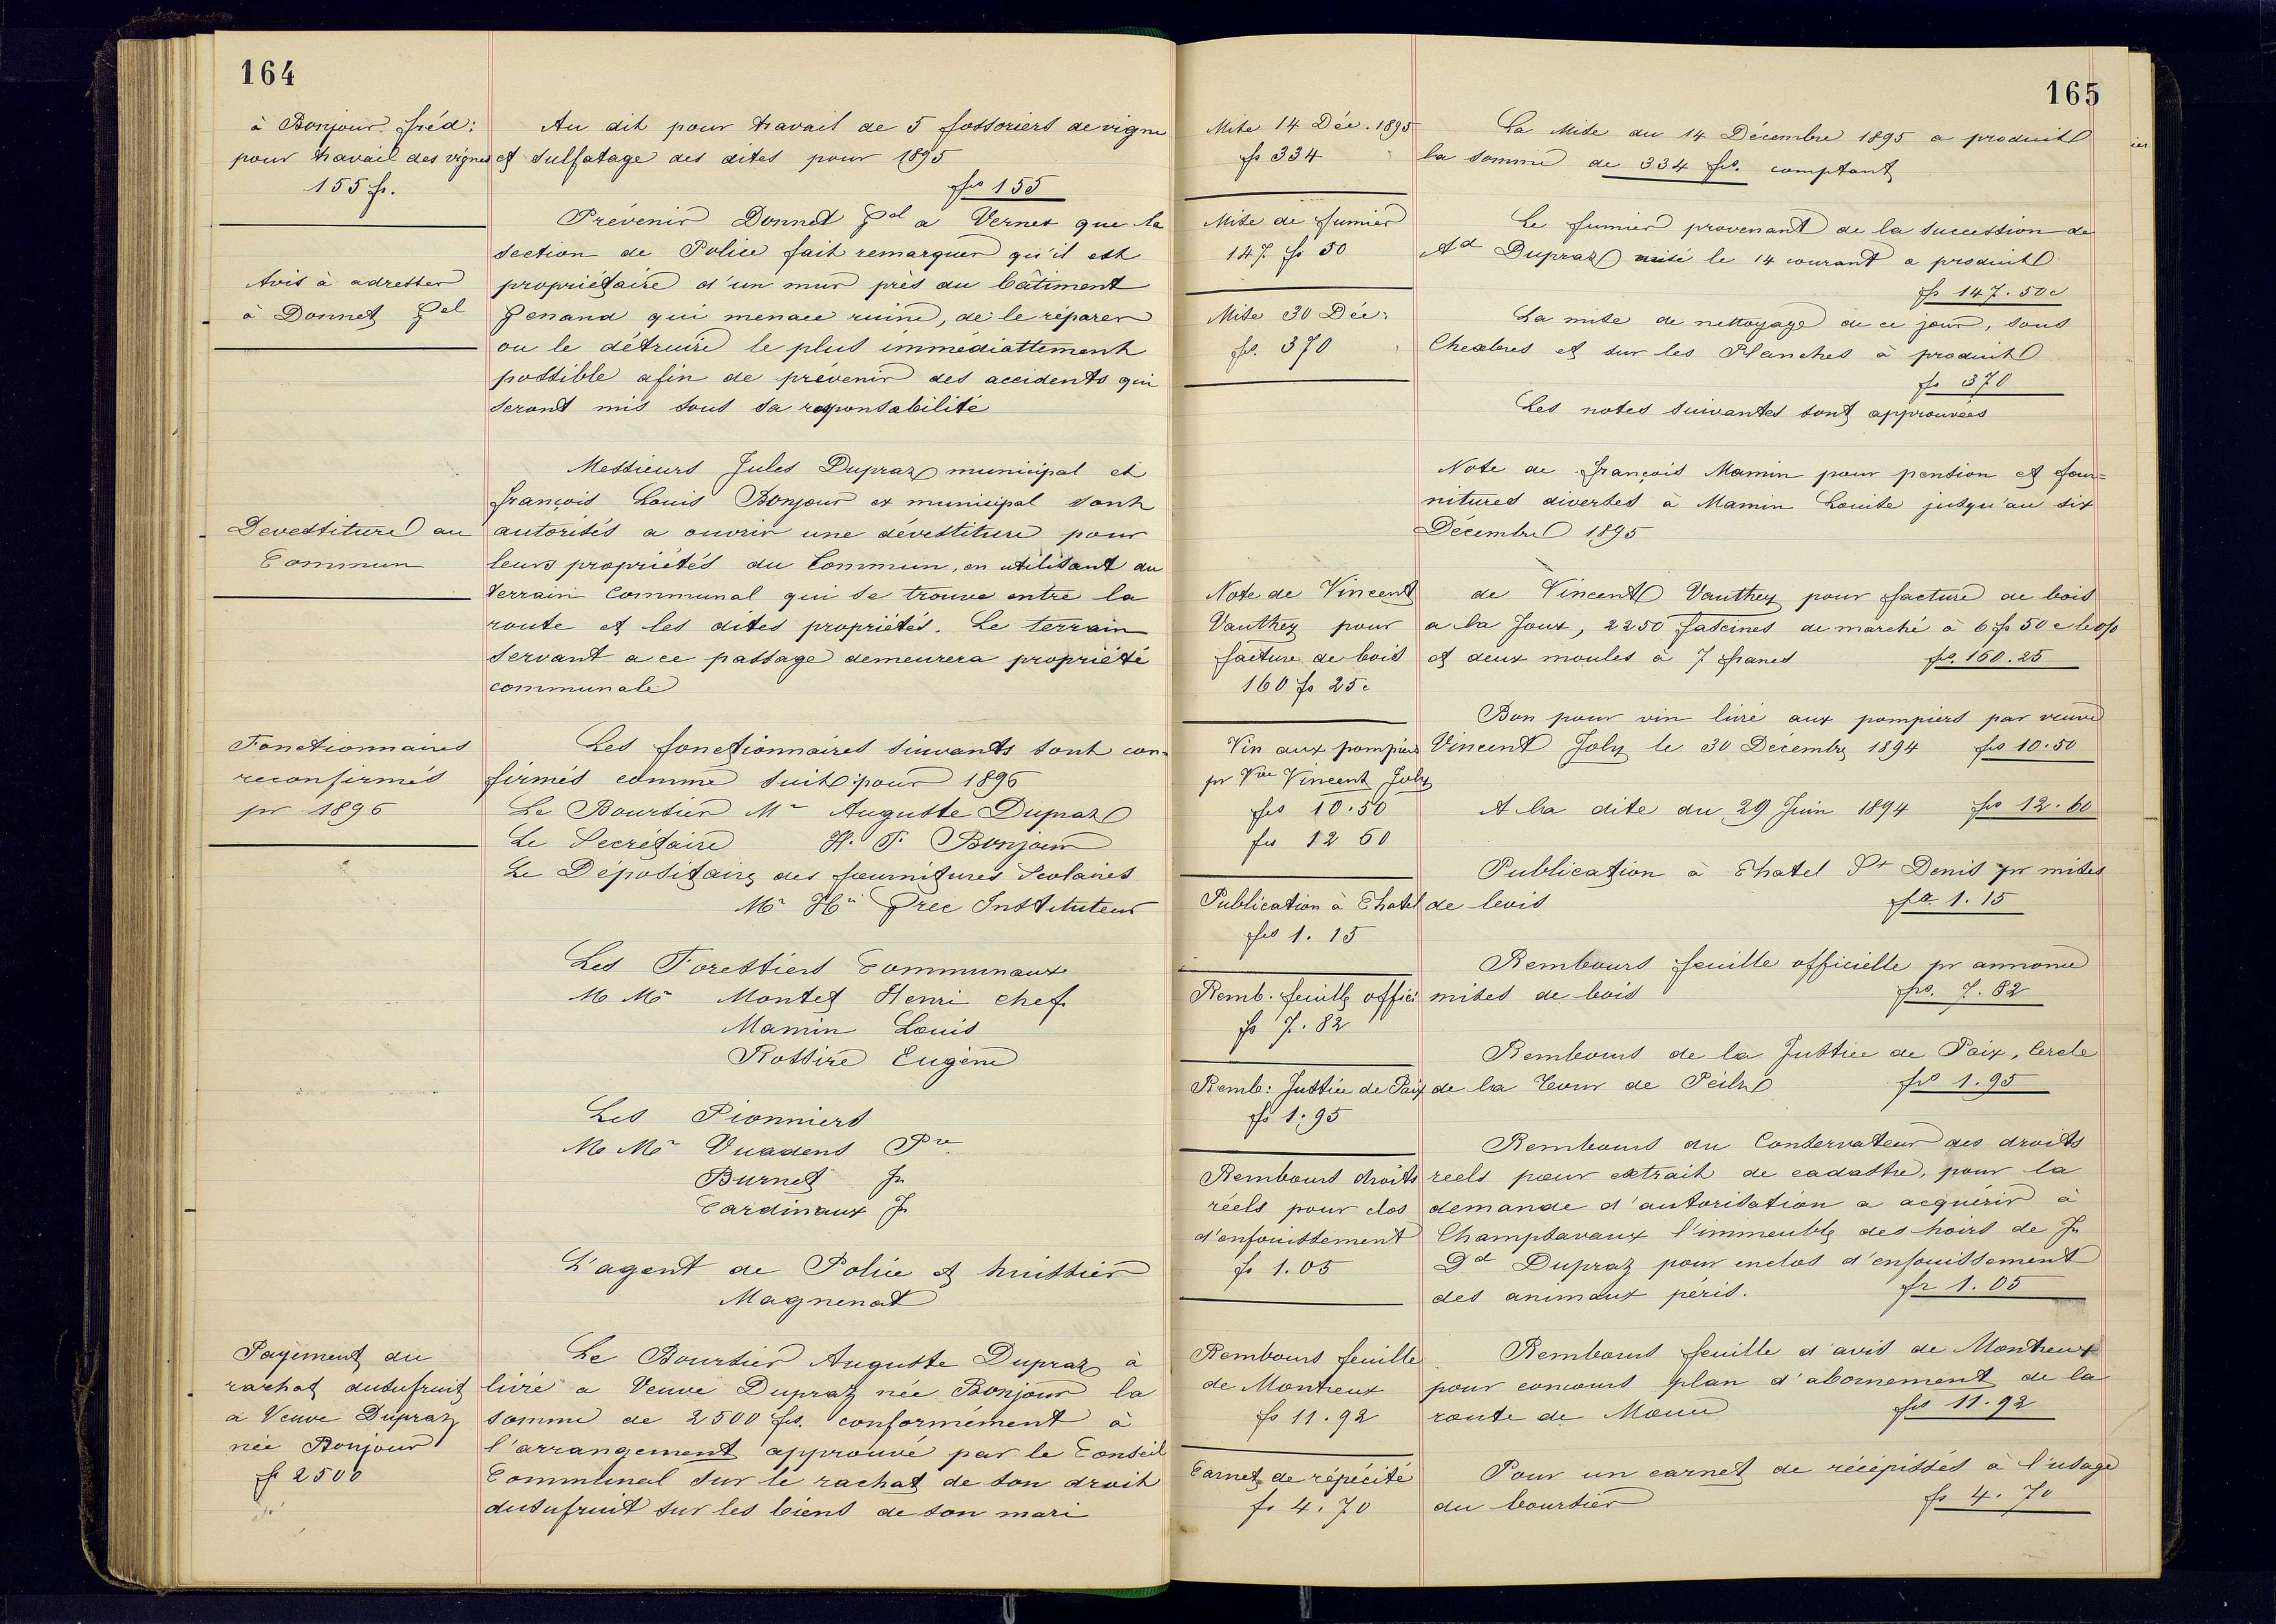 164
à Bonjour fréd:
pour travail des vignes
155 fr.
Avis à adresser
à Donnet Gel
Devestiture au
Commun
Fonctionnaires
reconfirmés
pr 1896
Payement du
rachat dusufruit
à Veuve Dupraz
née Bonjour
fr 2500
Au dit pour travail de 5 fossoriers de vigne
et sulfatage des dites pour 1895
frs 155
Prévenir Donnet Gel a Vernex que la
section de Police fait remarquer qu'il est
propriétaire d'un mur près du bâtiment
Genand qui menace ruine, de le réparer
ou le détruire le plus immédiattement
possible afin de prévenir des accidents qui
seront mis sous sa responsabilité
Messieurs Jules Dupraz municipal et
françois Louis Bonjour ex municipal sont
autorisés a ouvrir une dévestiture pour
leurs propriétés du Commun, en utilisant du
terrain Communal qui se trouve entre la
route et les dites propriétés. Le terrain
servant a ce passage demeurera propriété
communale
Les fonctionnaires suivants sont con-
firmés comme suit pour 1896
Le Boursier Mr Auguste Dupraz
Le Secrétaire H. F. Bonjour
Le Dépositaire des fournitures Scolaires
Mr Hri Grec Instituteur
Les Forestiers Communaux
M Mrs Montet Henri chef
Mamin Louis
Rossire Eugène
Les Pionniers
M Mrs Vuadens Pre
Burnet Jn
Cardinaux Jn
L'agent de Police et huissier
Magnenat
Le Boursier Auguste Dupraz à
livré a Veuve Dupraz née Bonjour la
somme de 2500 frs. conformément à
l'arrangement approuvé par le Conseil
Communal sur le rachat de son droit
dusufruit sur les biens de son mari
165
Mise 14 Déc. 1895
fr 334
Mise de fumier
147 fr 50
Mise 30 Déc:
frs. 370
Note de Vincent
Vauthey pour
facture de bois
160 fr 25 c
Vin aux pompiers
pr Vve Vincent Joly
frs 10.50
frs 12 60
Publication à Chatel
frs 1.15
Remb. feuille offici
fr 7.82
Remb: Justice de Paix
fr 1.95
Rembours droits
réels pour clos
d'enfouissement
fr 1.05
Rembours feuille
de Montreux
fr 11.92
Carnet de répécité
fr 4.70
La Mise du 14 Décembre 1895 a produit
la somme de 334 frs. comptant
Le fumier provenant de la succession de
Ad Dupraz misé le 14 courant a produit
fr 147.50 c
La mise de nettoyage de ce jour, sous
Chexbres et sur les Planches à produit
fr 370
Les notes suivantes sont approuvées
Note de françois Mamin pour pension et four=
nitures diverses à Mamin Louise jusqu'au six
Décembre 1895
de Vincent Vauthey pour facture de bois
a la Joux, 2250 fascines de marché à 6 fr 50 c le o/o
et deux moules à 7 francs frs. 160.25
Bon pour vin livré aux pompiers par veuve
Vincent Joly le 30 Décembre 1894 frs 10.50
A la dite du 29 Juin 1894 frs 12.60
Publication à Chatel St Denis pr mises
de bois frs 1.15
Rembours feuille officielle pr annonce
mises de bois frs. 7.82
Rembours de la Justice de Paix, Cercle
de la Tour de Peilz frs 1.95
Rembours au Conservateur des droits
reels pour extrait de cadastre, pour la
demande d'autorisation a acquérir à
Champsavaux l'immeuble des hoirs de Jn
Dd Dupraz pour enclos d'enfouissement
des animaux péris. fr 1.05
Rembours feuille d'avis de Montreux
pour concours plan d'abornement de la
route de Mouu frs 11.92
Pour un carnet de récépissés à l'usage
du boursier fr 4.70